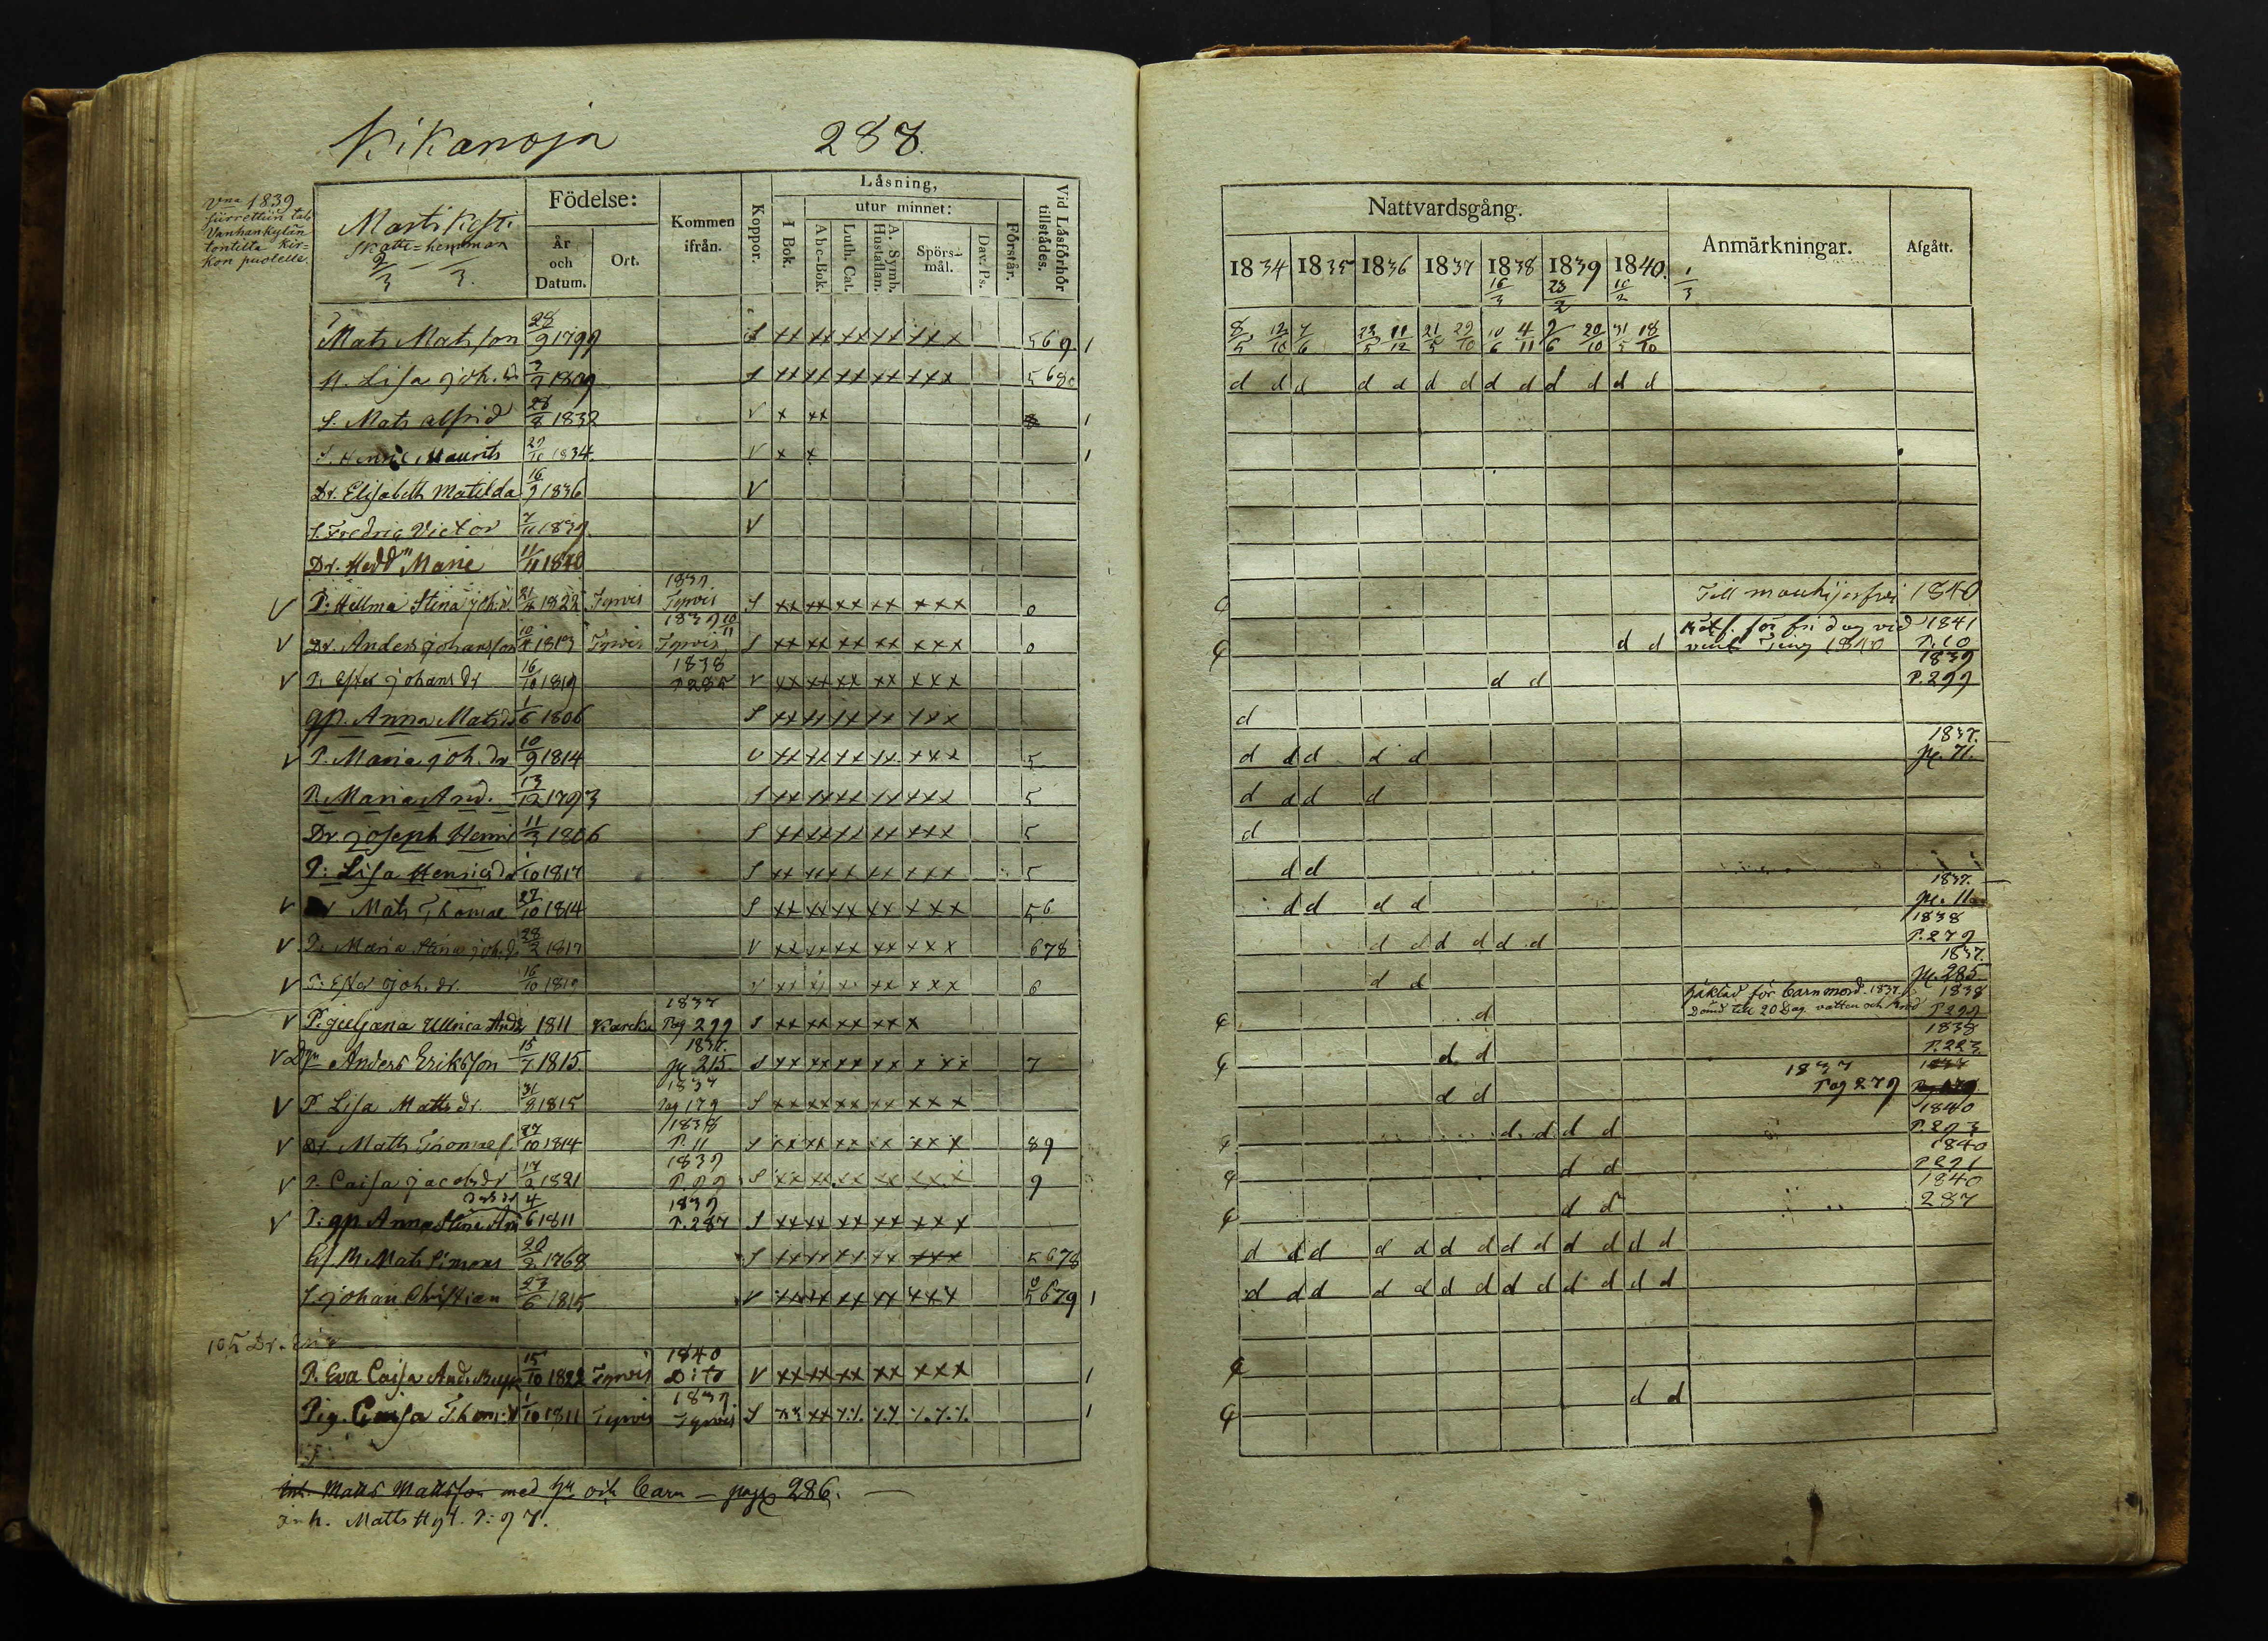 Kikanoja 288.
Vna 1839
siirrettiin talo
Vanhankylän
tontilta kir=
kon puolelle.
Martikesti
skatte=hemman
2/3 - /3.
Födelse:
År och Datum.
Ort.
Kommen ifrån.
Koppor.
Läsning,
I Bok.
utur minnet:
Abc-Bok.
Luth. Cat.
A. Symb. Hustaflan.
Spörs-mål.
Dav. Ps.
Förstår.
Vid Läsförhör tillstädes.
Mats Matsson 28/9 1799 S xx xx xx xx xxx 569. 1
H. Lisa Joh. dr 3/9 1809 S xx xx xx xx xxx 568
S. Mats Alfrid 28/8 1832 V x xx 8 1
S. Henric Maurits 29/10 1834. V x x 1
Dr. Elisabeth Matilda 16/9 1836 V
S. Fredric Victor 7/11 1839. V
Dr. Hedd" Marie 11/11 1840
V P: Hellma Stina Joh.d 21/4 1822 Tyrvis 1839 Tyrvis S xx xx xx xx xxx 0
V Dr. Anders Johansson 10/4 1813 Tyrvis 1839 10/11 Tyrvis S xx xx xx xx xxx 0
V P. Ester Johans dr 16/10 1819 1838 P 285 V xx xx xx xx xxx
gp. Anna Mats dr 1/6 1806 S xx xx xx xx xxx
V P. Maria Joh. dr 10/9 1814 V xx xx xx xx xxx 5
P. Maria And. 13/12 1793 S xx xx xx xx xxx 5
Dr. Joseph Henric 11/3 1806 S xx xx xx xx xxx 5
P: Lisa Henrics dr 1/10 1817 S xx xx xx xx xxx 5
V Mats Thomae 27/10 1814 S xx xx xx xx xxx 56
V P. Maria Stina Joh. d. 28/2 1817 V xx xx xx xx xxx 678
V P: Ester Joh. dr. 16/10 1819 V xx xx xx xx xxx 6
V P. Juljana Ullrica Ands 1811 Karcku 1837 Pag 299 S xx xx xx xx x
V Anders Eriksson 15/7 1815. 1837. pg. 215. S xx xx xx xx xxx 7
V P Lisa Matts dr. 31/8 1815 1837 Pag 179 S xx xx xx xx xxx
V Dr. Matts Thomae s. 27/10 1814 1838 P. 11 S xx xx xx xx xxx 89
V P. Caisa Jacobs dr 17/2 1821 1839 P. 99 S xx xx xx xx xxx 9
V P: gp Anna Stina 4/6 1811 1839 P. 287 S xx xx xx xx xxx
Mats Simons 20/2 1768 S xx xx xx xx xxx 5678
S. Johan Christian 23/6 1815 V xx xx xx xx xxx 5679 1
105 Dr. Eric
P. Eva Caisa And. 15/10 1822 Tyrvis 1840 Dito V xx xx xx xx xxx 1
Pig. Caisa Thom. d 1/10 1811 Tyrvis 1839 Tyrvis S xx xx 1
Inh. Matts Mattsson med hu och Barn - pag 286. -
Inh. Matts Hgt. P: 97.
Nattvardsgång.
Anmärkningar.
Afgått.
1834 1835 1836 1837 1838 1839 1840. 1/3
16/3 23/2 10/2
8/5 12/10 7/6 23/5 11/12 21/5 29/10 10/6 4/11 2/6 20/10 31/5 18/10
d d d d d d d d d d d d d
¢ Till mouhijerfvi 1840
¢ d d för fridag vid 1841
Ting 1840 P. 10
d d 1839 P. 299
d
d d d d d 1837. pg. 71.
d d d d
d
d d
d d d d 1837. pg. 11
d d d d d d 1838 P. 279
d d 1837. pg. 285
¢ d häktad för barnmord. 1837. 1838
Dömd till 20 Dag. vatten och Bröd P 299
¢ d d 1838 P. 223.
d d 1837 Pag 279 1837
¢ d d d d 1840 P. 293
¢ d d 1840 P 291
¢ d d 1840 287
d d d d d d d d d d d d d
d d d d d d d d d d d d d
¢
¢ d d